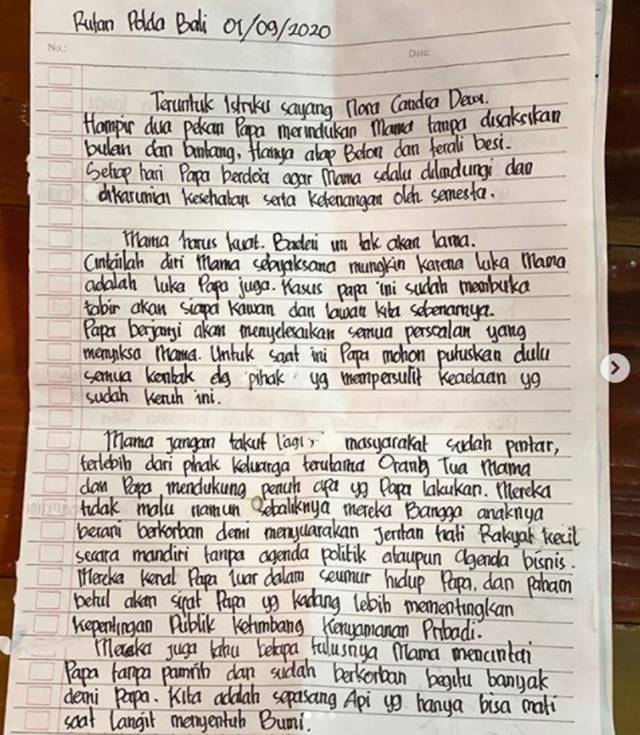 Rutan Polda Bali 01/09/2020
No.:
Date:
Teruntuk Istriku sayang Nora Candra Dewi.
Hampir dua pekan Papa merindukan Mama tanpa disaksikan
bulan dan bintang, Hanya atap Beton dan terali besi.
Setiap hari Papa berdo'a agar Mama selalu dilindungi dan
dikaruniai Kesehatan serta Ketenangan oleh semesta.
Mama harus kuat. Badai ini tak akan lama.
Cintailah diri Mama sebijaksana mungkin karena luka Mama
adalah luka Papa juga. Kasus papa ini sudah membuka
tabir akan siapa Kawan dan lawan kita sebenarnya.
Papa berjanji akan menyelesaikan semua persoalan yang
menyiksa Mama. Untuk saat ini Papa mohon putuskan dulu
semua kontak dg pihak yg mempersulit Keadaan yg
sudah Keruh ini.
Mama jangan takut lagi, masyarakat sudah pintar,
terlebih dari pihak Keluarga terutama Orang Tua Mama
dan Papa mendukung penuh apa yg Papa lakukan. Mereka
tidak malu namun Sebaliknya mereka Bangga anaknya
berani berkorban demi menyuarakan Jeritan hati Rakyat kecil
secara mandiri tanpa agenda politik ataupun agenda bisnis.
Mereka Kenal Papa luar dalam seumur hidup Papa, dan paham
betul akan sifat Papa yg kadang lebih mementingkan
Kepentingan Publik Ketimbang Kenyamanan Pribadi.
Mereka juga tahu betapa tulusnya Mama mencintai
Papa tanpa pamrih dan sudah berkorban begitu banyak
demi Papa. Kita adalah sepasang Api yg hanya bisa mati
saat Langit menyentuh Bumi.